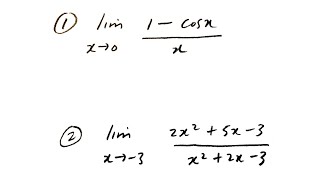 ① lim x→0 (1 − cosx) / x
② lim x→−3 (2x² + 5x − 3) / (x² + 2x − 3)